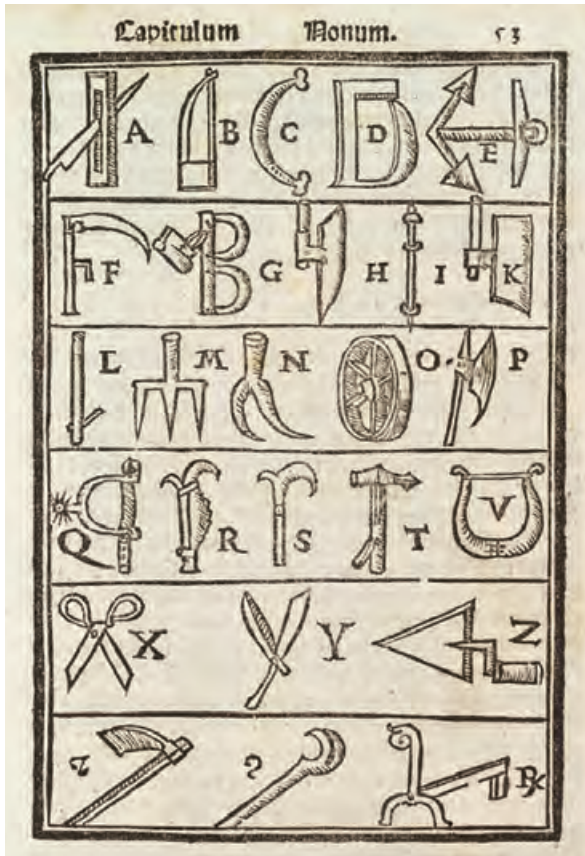 Capitulum Nonum. 53
A B C D E
F G H I K
L M N O P
Q R S T V
X Y Z